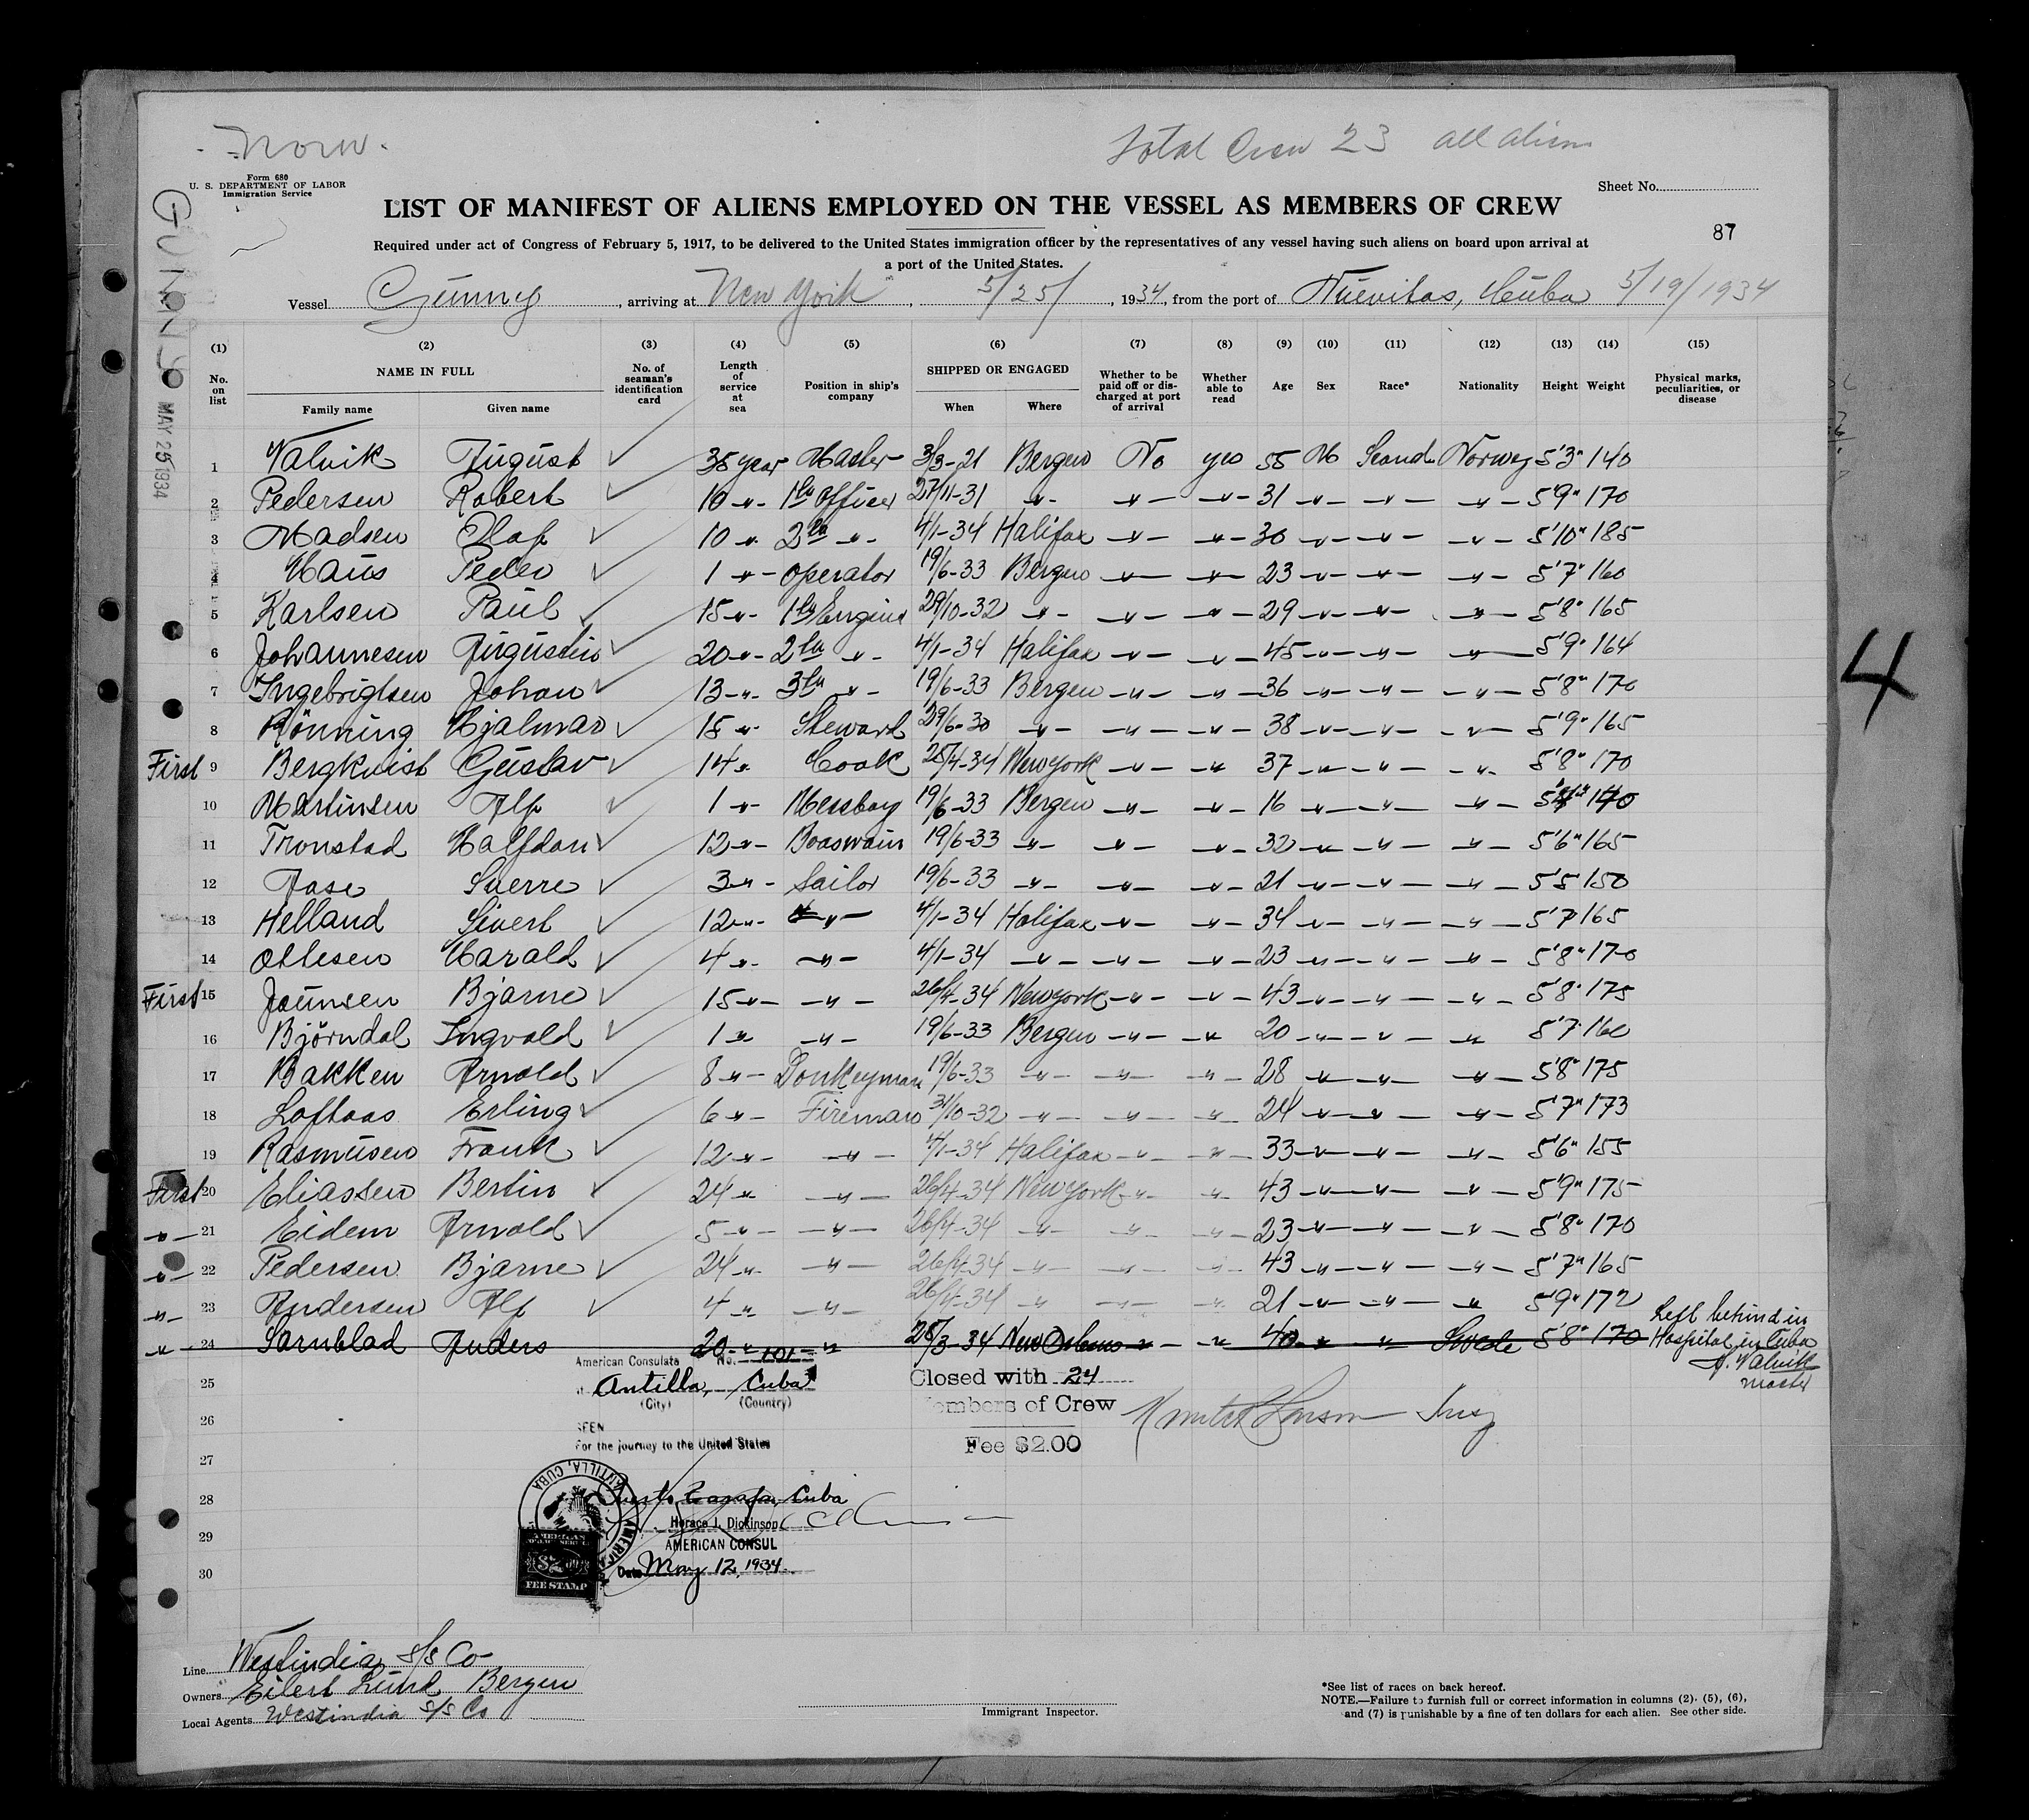 Norw.
Total Crew 23 all aliens
Form 680
U. S. DEPARTMENT OF LABOR
Immigration Service
Sheet No.
GUNNY
MAY 25 1934
LIST OF MANIFEST OF ALIENS EMPLOYED ON THE VESSEL AS MEMBERS OF CREW
87
Required under act of Congress of February 5, 1917, to be delivered to the United States immigration officer by the representatives of any vessel having such aliens on board upon arrival at
a port of the United States.
Vessel Gunny, arriving at New York, 5/25/, 1934, from the port of Nuevitas, Cuba 5/19/1934
(1) (2) (3) (4) (5) (6) (7) (8) (9) (10) (11) (12) (13) (14) (15)
No. on list NAME IN FULL Family name Given name No. of seaman's identification card Length of service at sea Position in ship's company SHIPPED OR ENGAGED When Where Whether to be paid off or discharged at port of arrival Whether able to read Age Sex Race* Nationality Height Weight Physical marks, peculiarities, or disease
1 Valvik August 38 year Master 3/3-21 Bergen No yes 55 M Scand Norweg 5'3" 140
2 Pedersen Robert 10 " 1st Officer 27/11-31 " " " 31 " " " 5'9" 170
3 Madsen Olaf 10 " 2nd " 4/1-34 Halifax " " 30 " " " 5'10" 185
4 Haus Peder 1 " operator 19/6-33 Bergen " " 23 " " " 5'7" 160
5 Karlsen Paul 15 " 1st Engine 29/10-32 " " " 29 " " " 5'8" 165
6 Johannesen Augustin 20 " 2nd " 4/1-34 Halifax " " 45 " " " 5'9" 164
7 Ingebrigtsen Johan 13 " 3rd " 19/6-33 Bergen " " 36 " " " 5'8" 170
8 Rönning Hjalmar 15 " Steward 29/6-30 " " " 38 " " " 5'9" 165
First 9 Bergkvist Gustav 14 " Cook 25/4-34 New york " " 37 " " " 5'8" 170
10 Martinsen Alf 1 " Messboy 19/6-33 Bergen " " 16 " " " 140
11 Tronstad Halfdan 12 " Boaswain 19/6-33 " " " 32 " " " 5'6" 165
12 Aase Sverre 3 " Sailor 19/6-33 " " " 21 " " " 5'5 150
13 Helland Sivert 12 " " 4/1-34 Halifax " " 34 " " " 5'7 165
14 Ottesen Harald 4 " " 4/1-34 " " " 23 " " " 5'8" 170
First 15 Jounsen Bjarne 15 " " 26/4-34 New york " " 43 " " " 5'8" 175
16 Björndal Ingvald 1 " " 19/6-33 Bergen " " 20 " " " 5'7" 160
17 Bakken Arnold 8 " Donkeyman 19/6-33 " " " 28 " " " 5'8" 175
18 Loftaas Erling 6 " Fireman 31/10-32 " " " 24 " " " 5'7" 173
19 Rasmusen Frank 12 " " 4/1-34 Halifax " " 33 " " " 5'6" 155
First 20 Eliassen Bertin 24 " " 26/4-34 New york " " 43 " " " 5'9" 175
" 21 Eidem Arnold 5 " " 26/4-34 " " " 23 " " " 5'8" 170
" 22 Pedersen Bjarne 24 " " 26/4-34 " " " 43 " " " 5'7" 165
" 23 Andersen Alf 4 " " 26/4-34 " " " 21 " " " 5'9" 172
" 24 Sarnblad Anders 20 " " 28/3-34 New Orleans " " 40 " " Swede 5'8" 170 Left behind in
Hospital in Cuba
A. Valvik
master
American Consulate No. 101
25 Antilla, Cuba
(City) (Country)
Closed with 24
Members of Crew
Fee $2.00
26
SEEN
For the journey to the United States
27
28 Cuba
Horace J. Dickinson
29
AMERICAN CONSUL
Date May 12, 1934.
30
ANTILLA, CUBA
AMERICAN
FEE STAMP
4
Line Westindia S/S Co
Owners Eilert Lund Bergen
Local Agents Westindia S/S Co
Immigrant Inspector.
*See list of races on back hereof.
NOTE.—Failure to furnish full or correct information in columns (2), (5), (6),
and (7) is punishable by a fine of ten dollars for each alien. See other side.